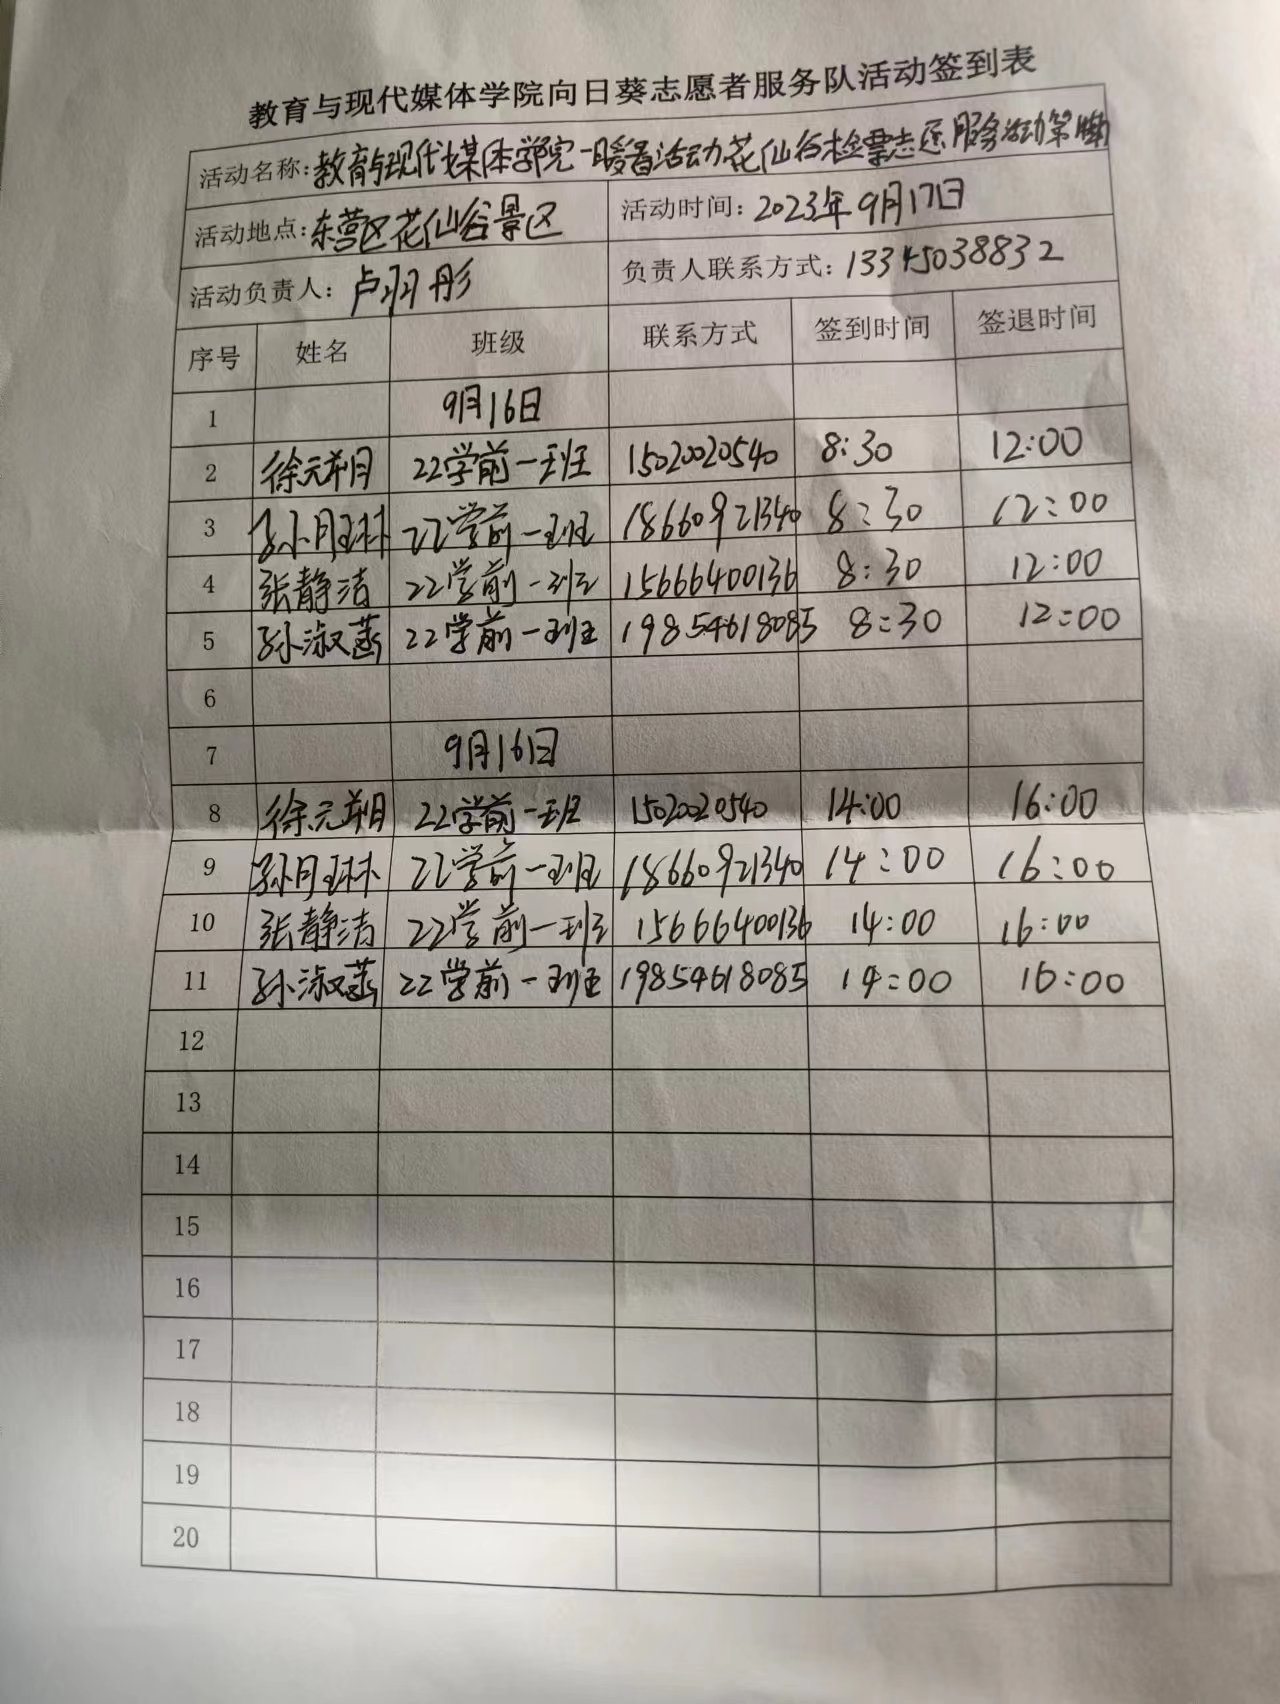 教育与现代媒体学院向日葵志愿者服务队活动签到表
活动名称：教育与现代媒体学院一暖春活动花仙谷检票志愿服务活动第
活动地点：东营区花仙谷景区 活动时间：2023年9月17日
活动负责人：卢羽彤 负责人联系方式：13345038832
序号 姓名 班级 联系方式 签到时间 签退时间
1 9月16日
2 徐元朔 22学前一班 15020020540 8:30 12:00
3 孙月琳 22学前一班 18660921340 8:30 12:00
4 张静洁 22学前一班 15666400136 8:30 12:00
5 孙淑菡 22学前一班 19854618085 8:30 12:00
6
7 9月16日
8 徐元朔 22学前一班 1502020540 14:00 16:00
9 孙月琳 22学前一班 18660921340 14:00 16:00
10 张静洁 22学前一班 15666400136 14:00 16:00
11 孙淑菡 22学前一班 19854618085 14:00 16:00
12
13
14
15
16
17
18
19
20